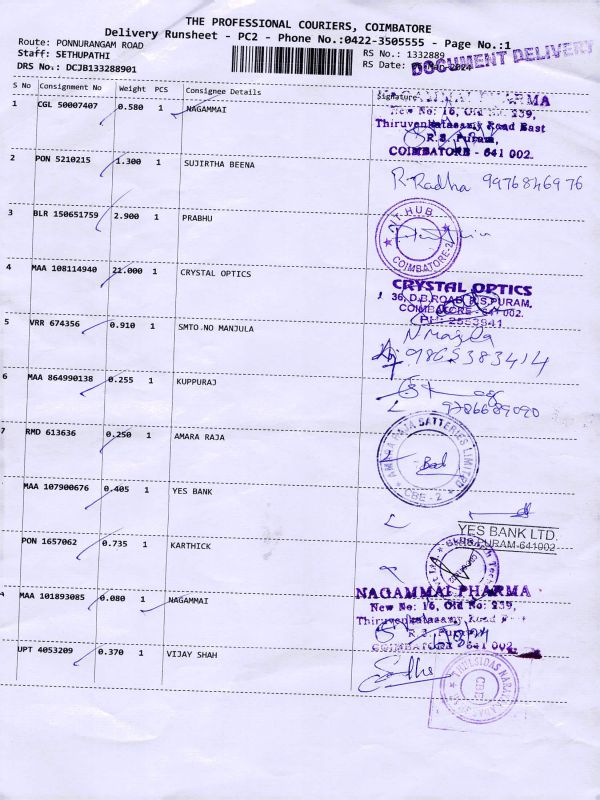 THE PROFESSIONAL COURIERS, COIMBATORE
Delivery Runsheet - PC2 - Phone No.:0422-3505555 - Page No.:1
Route: PONNURANGAM ROAD
Staff: SETHUPATHI
DRS No.: DCJB133288901
RS No.: 1332889
RS Date:
DOCUMENT DELIVERY
S No Consignment No Weight PCS Consignee Details Signature
1 CGL 50007407 0.580 1 NAGAMMAI
NAGAMMAI PHARMA
New No: 16, Old No: 239,
Thiruvenkatasamy Road East
R.S. Puram,
COIMBATORE - 641 002.
2 PON 5210215 1.300 1 SUJIRTHA BEENA
R. Radha 9976846976
3 BLR 150651759 2.900 1 PRABHU
HUB
COIMBATORE-2
4 MAA 108114940 21.000 1 CRYSTAL OPTICS
CRYSTAL OPTICS
36, D.B.ROAD, R.S.PURAM,
COIMBATORE - 641 002.
5 VRR 674356 0.910 1 SMTO.NO MANJULA
9865383414
6 MAA 864990138 0.255 1 KUPPURAJ
9786689090
7 RMD 613636 0.250 1 AMARA RAJA
AMARA RAJA BATTERIES LIMITED
CBE - 2
MAA 107900676 0.405 1 YES BANK
YES BANK LTD.
PURAM-641002
PON 1657062 0.735 1 KARTHICK
MAA 101893085 0.080 1 NAGAMMAI
NAGAMMAI PHARMA
New No: 16, Old No: 239,
Thiruvenkatasamy Road
R.S. Puram
COIMBATORE - 641 002.
UPT 4053209 0.370 1 VIJAY SHAH
THULSIDAS
CBE